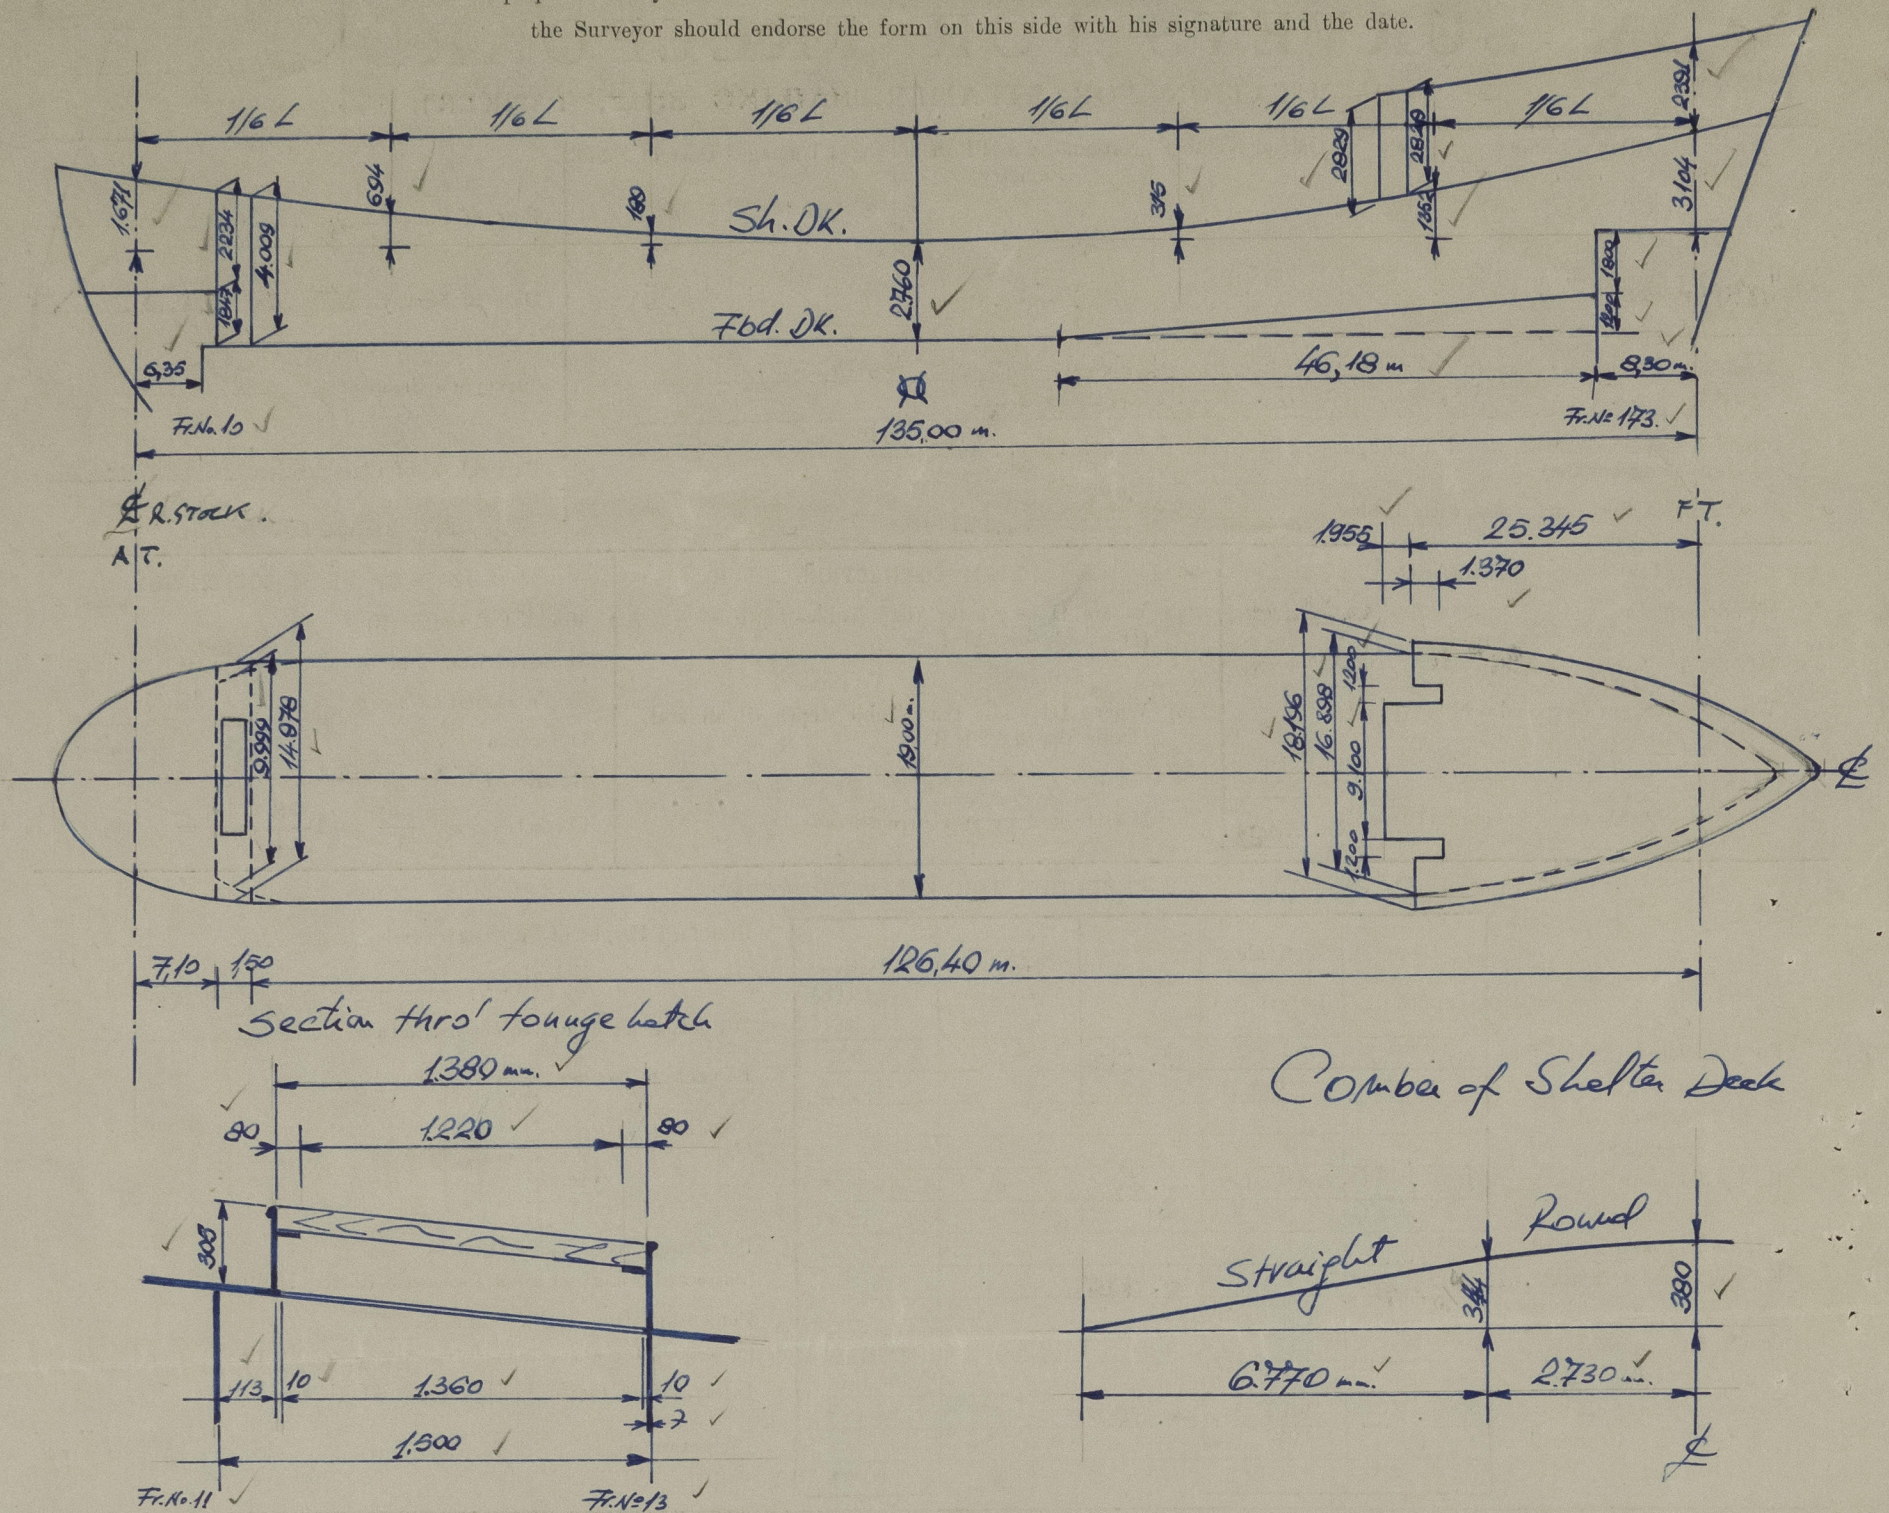 the Surveyor should endorse the form on this side with his signature and the date.
1/6 L 1/6 L 1/6 L 1/6 L 1/6 L 1/6 L
2391
1.671 694 189 Sh. DK. 315 2829 2829 1352 3104
2234 4.009 1847 2760 1800
Fbd. DK.
6,35 46,18 m 8,30 m.
Fr.No.10 135,00 m. Fr.No 173.
℄ R. STOCK.
A.T.
F.T.
1.955 25.345
1.370
9.999 14.978 19,00 m. 18.196 16.898 1200 9.100 1.200
℄
7,10 1,50 126,40 m.
Section thro' tonnge hatch
1.380 mm.
80 1.220 80
305
113 10 1.360 10
7
1.500
Fr.No.11 Fr.No 13
Comber of Shelter Deck
Straight Round
344 380
6.770 mm. 2.730 mm.
℄